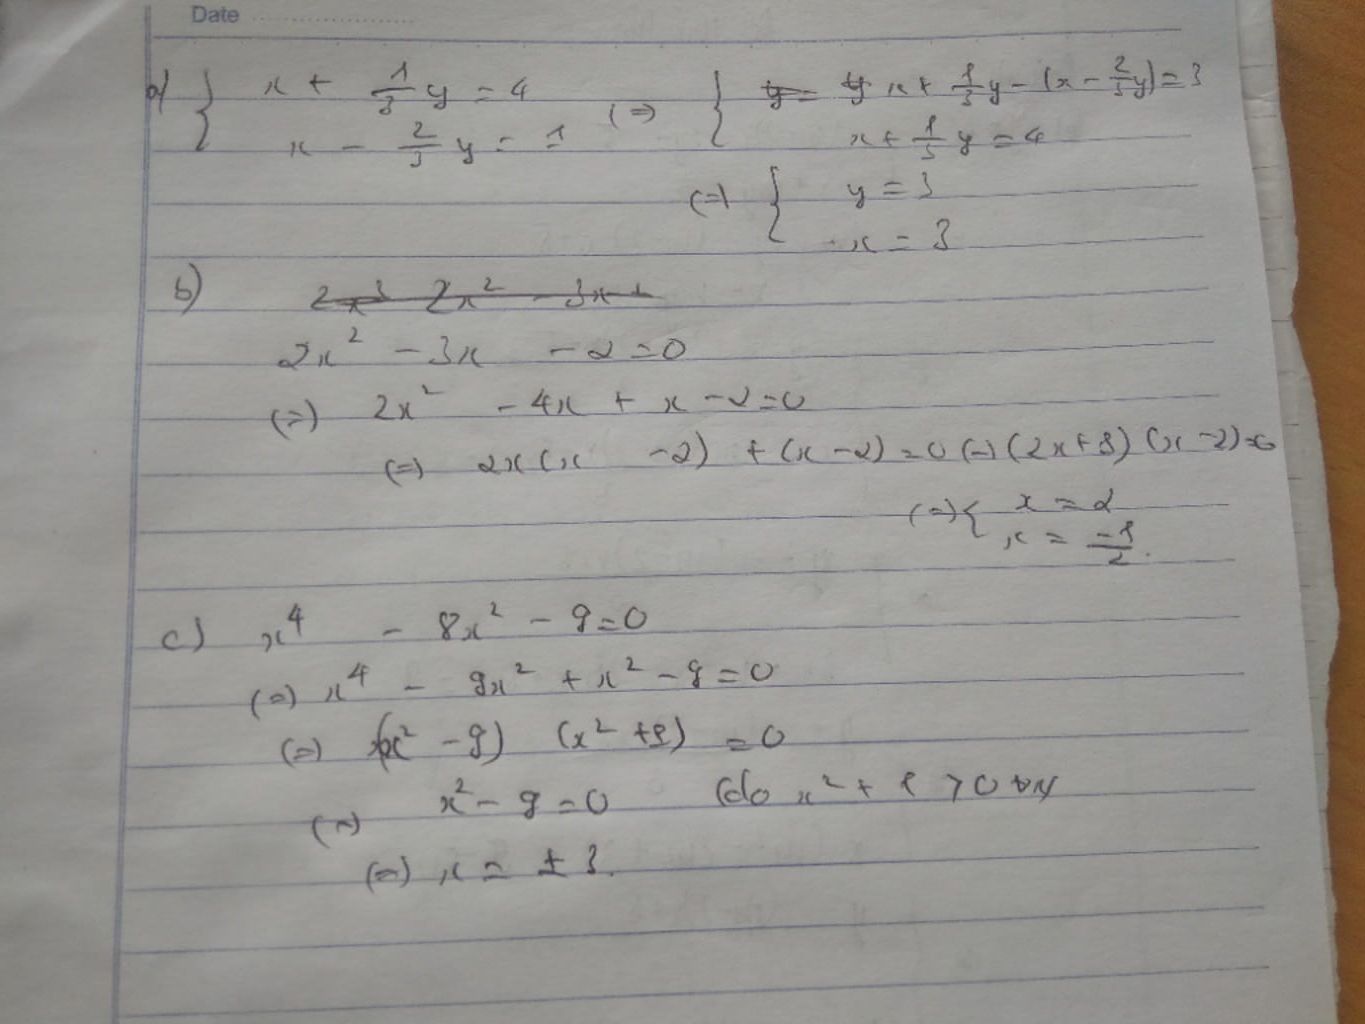 Date
a) { x + 1/3 y = 4 (=) { x + 1/3 y - (x - 2/3 y) = 3
x - 2/3 y = 1 x + 1/3 y = 4
(=) { y = 3
x = 3
b) 2x^3 2x^2 - 3x
2x^2 - 3x - 2 = 0
(=) 2x^2 - 4x + x - 2 = 0
(=) 2x(x - 2) + (x - 2) = 0 (=) (2x+1) (x-2) = 0
(=) { x = 2
x = -1/2.
c) x^4 - 8x^2 - 9 = 0
(=) x^4 - 9x^2 + x^2 - 9 = 0
(=) (x^2 - 9) (x^2 + 1) = 0
(=) x^2 - 9 = 0 (do x^2 + 1 > 0 ∀x)
(=) x = ± 3.